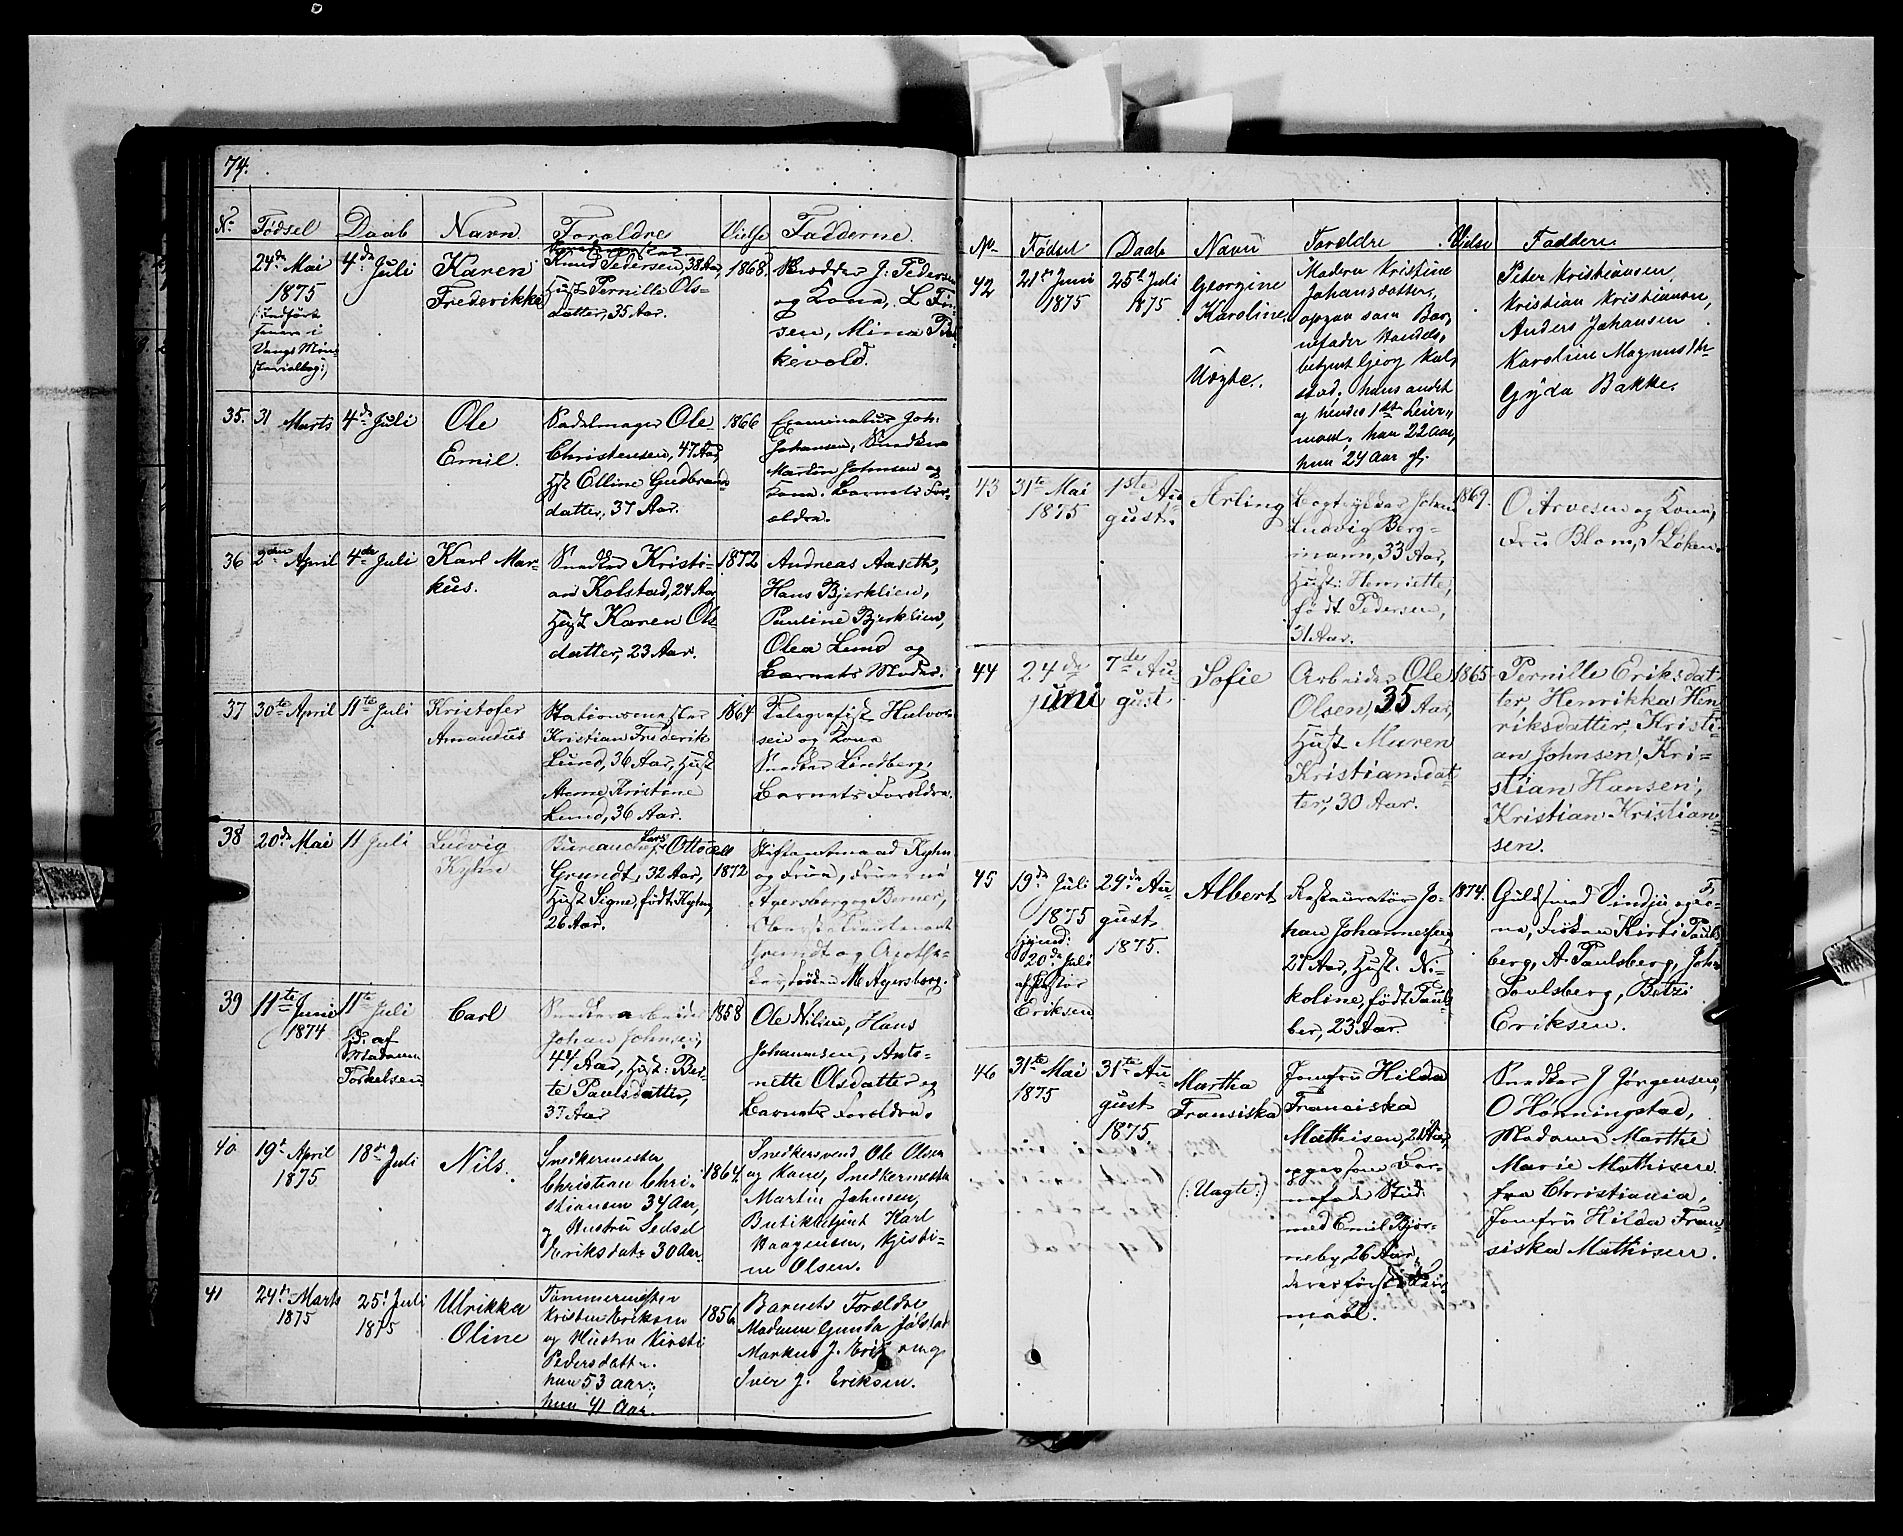 74.
No. Fødsel Daab Navn Forældre Vielse Fadderne.
24de Mai
1875
(Indført
Vangs
4de Juli
Karen
Frederikke
Knud Pedersen, 38 Aar,
Hust. Pernille Ols-
datter, 35 Aar.
1868.
J. Peder
og Kone, L
sen, Mina
kevold.
35.
31 Marts
4de Juli
Ole
Emil.
Sadelmager Ole
Christensen, 47 Aar,
Hust. Elline Gudbrands
datter, 37 Aar.
1866
Examinatus Joh.
Johansen, Snedker
Martin Johnsen og
Kone. Barnets For-
ældre.
36
2den April
4de Juli
Karl Mar-
kus.
Snedker Kristi-
an Kolstad, 24 Aar
Hust. Karen Ols
datter, 23 Aar.
1872
Andreas Aaseth,
Hans Bjerklien,
Pauline Bjerklien,
Olea Lund og
Barnets Moder.
37
30te April
11te Juli
Kristofer
Amandus
Stationsmester
Kristian Frederik
Lund, 36 Aar, Hust
Kristine
Lund, 36 Aar.
1864.
Telegrafist Halvor-
sen og Kone
Snedker Lindberg,
Barnets Forældre.
38
20de Mai
11 Juli
Ludvig
Kyhn
Bureauchef Otto
Grundt, 32 Aar,
Hust. Signe, født Kyhn,
26 Aar.
1872
Stiftamtmand Kyhn
og Frue, Fruerne
Ayersborg og Berner,
Oberst
Grundt og Apothe-
Frøken M. Ayersborg.
39
11te Juni
1874
11te Juli
af
Madame
Torkelsen
Carl
Snedkerarbeider
Johan Johnsen,
44 Aar, Hust: Ber-
te Paulsdatter,
37 Aar
1858
Ole Nilsen, Hans
Johannsen, Anto-
nette Olsdatter og
Barnets Forældre.
40
19de April
1875
18de Juli
Nils.
Snedkermester
Christian Chri-
stiansen 34 Aar,
og Hustru Sedsel
Eriksdatr 30 Aar
1864.
Snedkersvend Ole Olsen
og Kone, Snedkermester
Martin Johnsen,
Butikbetjent Karl
Haagensen, Kjisti-
ne Olsen.
41
24de Marts
1875
25de Juli
1875
Ulrikka
Oline
Tømmermester
Kristen Eriksen
og Hustru Kirsti
Pedersdatter.
han 53 aar,
hun 41 Aar.
1856
Barnets Forældre
Madame Gunda
Markus J.
Iver J. Eriksen.
No. Fødsel Daab Navn Foreldre Vielse Faddere.
42
21de Juni
1875
25de Juli
1875
Georgine
Karoline.
Uægte.
Moderen Kristine
Johansdatter,
opgav som Bar-
nefader Handels-
betjent Georg Kol-
stad, hans andet
og hendes 1ste Leier-
maal, han 22 aar,
hun 24 Aar gl.
Peter Kristiansen,
Kristian Kristiansen,
Anders Johansen
Karoline
Gyda Bakke.
43
31te Mai
1875
1ste Au
gust.
Arling
Bogtrykker Johan
Ludvig Berg-
mann, 33 Aar,
Hust: Henriette,
født Pedersen,
31 Aar.
1869.
O Arvesen og Kone,
Fru Blom, Løken
44
24de
juni
7de Au-
gust.
Sofie
Arbeider Ole
Olsen, 35 Aar,
Hust. Maren
Kristiansdat
ter, 30 Aar.
1865
Pernille Eriksdat
ter, Henrikka Hen
riksdatter, Kristi-
an Johnsen, Kri-
stian Hansen,
Kristian Kristian-
sen.
45
19de Juli
1875
hjemd:
20de Juli
af Pastor
Eriksen
29de Au-
gust
1875.
Albert
Restauratør Jo-
han Johannesen
Aar, Hust: Ni-
koline, født Pauls
ber, 23 Aar.
1874.
Guldsmed og Ko-
ne, Frøken Kirsti Pauls
berg, A. Paulsberg, John
Paulsberg, Betzi
Eriksen.
46
31te Mai
1875
31te Au-
gust
1875.
Martha
Fransiska
(:Uægte:)
Jomfru Hilda
Franciska
Mathisen, 21 Aar,
opgav som Bar-
nefader Stud:
med Emil Bjør-
neby, 26 Aar,
deres første Leier-
maal.
Snedker J Jørgensen,
O Hørningstad,
Madame Marthe
Marie Mathisen
fra Christiania,
Jomfru Hilda Fran-
siska Mathisen.